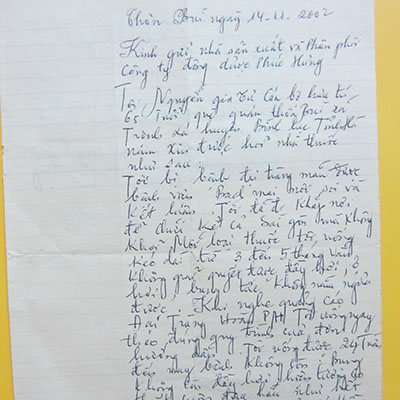 Thôn Bùi ngày 14-11-2002
Kính gửi nhà sản xuất và Phân phối
Công ty đông dược Phúc Hưng
Tôi Nguyễn gia Tử Cán bộ hưu trí
65 tuổi quê quán thôn Bùi xã
Trịnh xá huyện Bình lục Tỉnh Hà
nam xin được hỏi nhà thuốc
như sau:
Tôi bị bệnh đại tràng mãn được
bệnh viện Bạch mai nội soi và
Kết luận Tôi đã đi Khắp nơi
để chữa Kể cả Sài gòn mà Không
Khỏi Mỗi loại thuốc tôi uống
Kéo dài từ 3 đến 5 tháng vẫn
Không giải quyết được đầy hơi, ợ
hơi, bụng tức Không nằm ngửa
được. Khi nghe quảng cáo
Đại Tràng Hoàn P/H Tôi uống ngay
theo đúng quy trình của đơn
hướng dẫn Tôi uống được 24 Tuần
đến nay bệnh Không còn ở Bụng
Không còn đầy hơi